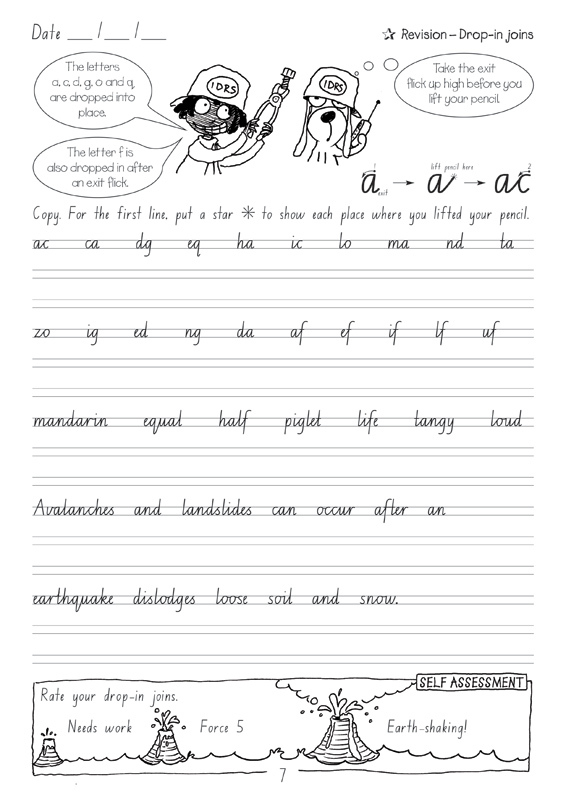 Date ___ / ___ / ___
☆ Revision – Drop-in joins
The letters
a, c, d, g, o and q,
are dropped into
place.
IDRS
IDRS
Take the exit
flick up high before you
lift your pencil.
The letter f is
also dropped in after
an exit flick.
1 lift pencil here 2
a → a* → ac
exit
Copy. For the first line, put a star ✳ to show each place where you lifted your pencil.
ac ca dg eq ha ic lo ma nd ta
zo ig ed ng da af ef if lf uf
mandarin equal half piglet life tangy loud
Avalanches and landslides can occur after an
earthquake dislodges loose soil and snow.
SELF ASSESSMENT
Rate your drop-in joins.
Needs work Force 5 Earth-shaking!
7